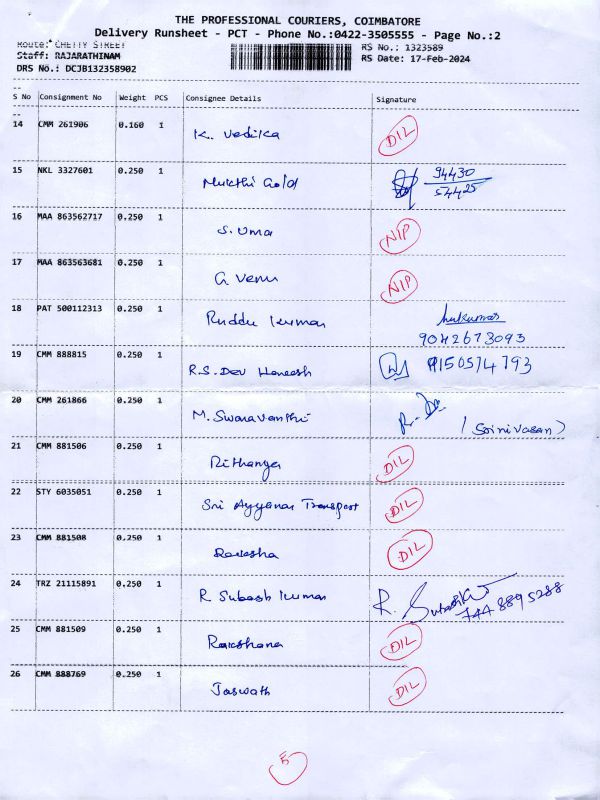 THE PROFESSIONAL COURIERS, COIMBATORE
Delivery Runsheet - PCT - Phone No.:0422-3505555 - Page No.:2
Route: CHETTY STREET
RS No.: 1323589
Staff: RAJARATHINAM
RS Date: 17-Feb-2024
DRS No.: DCJB132358902
S No Consignment No Weight PCS Consignee Details Signature
14 CMM 261906 0.160 1 K. Vedika DIL
15 NKL 3327601 0.250 1 Mukthi Gold 94430
54425
16 MAA 863562717 0.250 1 S. Uma NIP
17 MAA 863563681 0.250 1 G Venu NIP
18 PAT 500112313 0.250 1 Ruddu Kumar
9042673093
19 CMM 888815 0.250 1 R.S. Dev Haneesh 9150574793
20 CMM 261866 0.250 1 M. Swaravanthi
(Srinivasan)
21 CMM 881506 0.250 1 Rithanya DIL
22 STY 6035051 0.250 1 Sri Ayyanar Transport DIL
23 CMM 881508 0.250 1 Raksha DIL
24 TRZ 21115891 0.250 1 R Subash Kumar R.
744 8895288
25 CMM 881509 0.250 1 Rakshana DIL
26 CMM 888769 0.250 1 Jaswath DIL
5